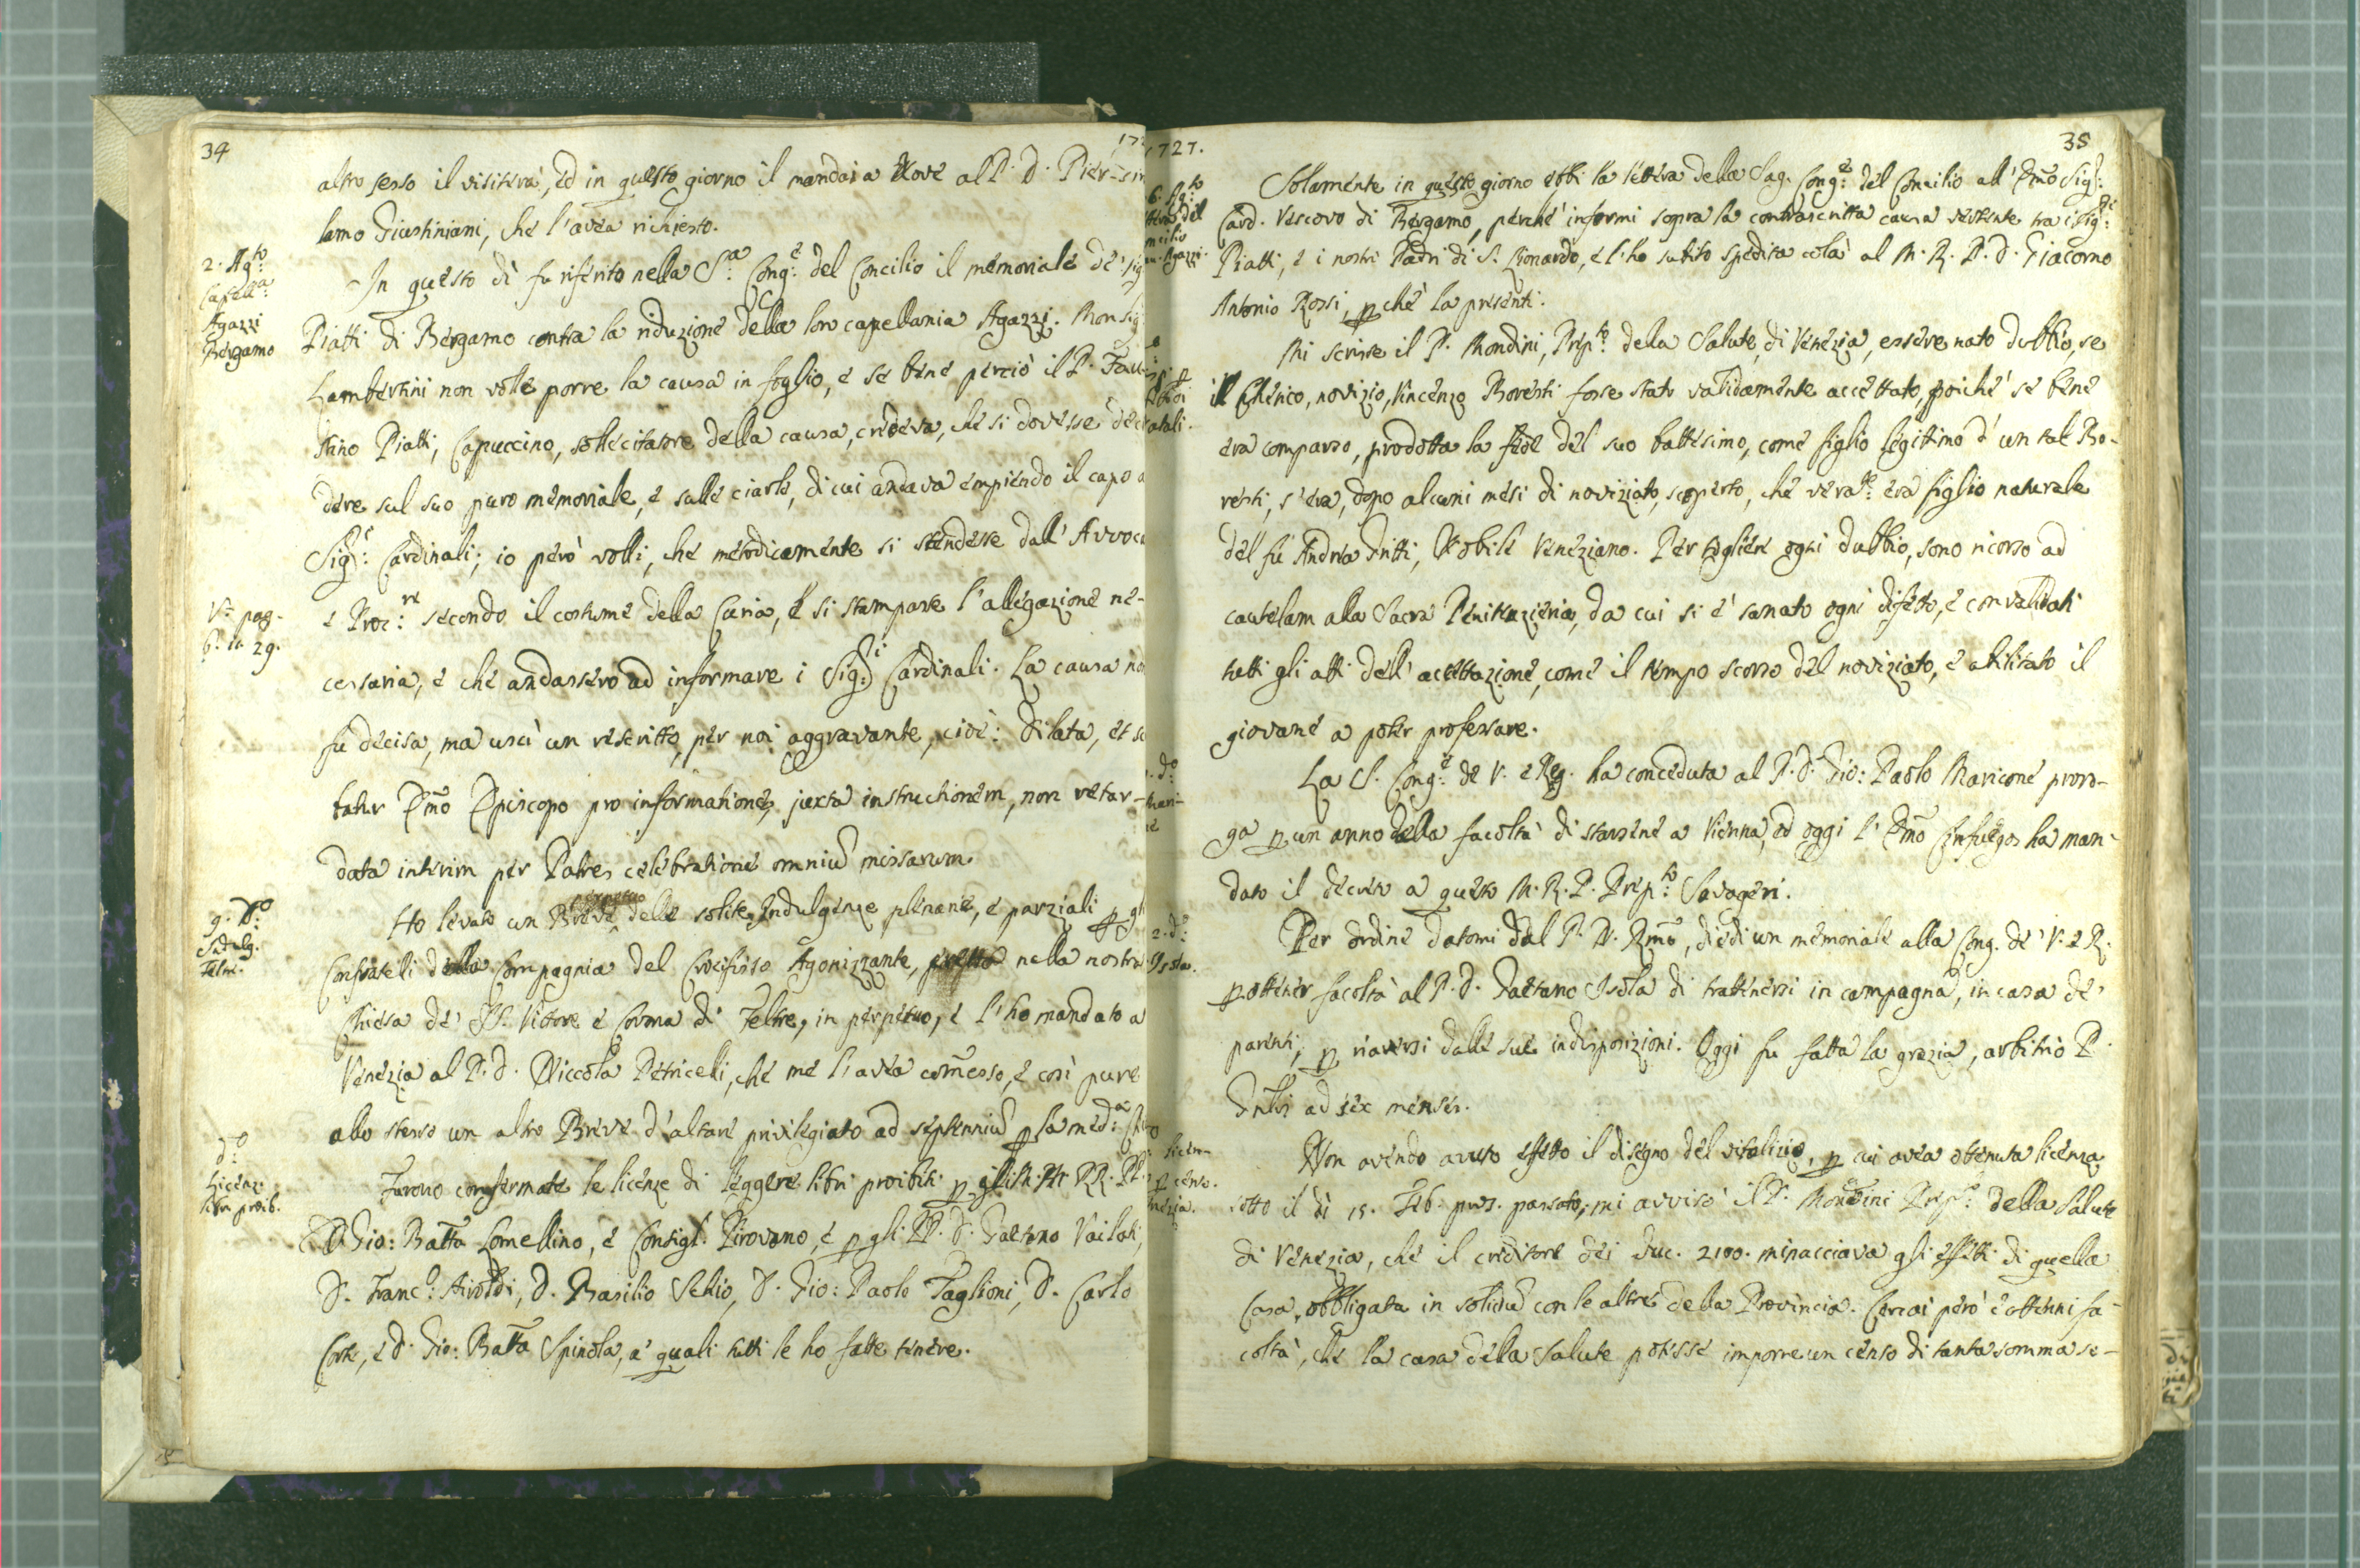 34
altro sesso il visiterà, ed in questo giorno il mandai a Nove al P. D. Pier-
lamo Giustiniani, che l'avea richiesto.
2. Ag.to
Capell.a
Agazzi
Bergamo
In questo dì fu riferito nella S.a Cong.e del Concilio il memoriale de' Sig
Piatti di Bergamo contra la riduzione della loro capellania Agazzi. Monsig
Lambertini non volle porre la causa in foglio, e se bene perciò il P. Fau-
stino Piatti, Capuccino, sollecitatore della causa, credeva, che si dovesse dec
dere sul suo puro memoriale, e sulle ciarle, di cui andava empiendo il capo a
Sig.i Cardinali; io però volli, che metodicamente si stendesse dall' Avvoca
V.e pag.
6. 11. 29.
e Proc.re secondo il costume della Curia, e si stampasse l'allegazione ne-
cessaria, e che andassero ad informare i Sig.i Cardinali. La causa no
fu decisa, ma uscì un rescritto, per noi aggravante, cioè: Dilata, et sc
batur Emo Episcopo pro informatione, juxta instructionem, non retar-
data interim per Patres celebratione omniu missarum.
9. D.o
Indulg.
Feltre.
Ho levato un Breve delle solite Indulgenze plenarie, e parziali p gl
Confrateli della Compagnia del Crocifisso Agonizzante, nella nostra
Chiesa de' SS. Vittore e Corona di Feltre, in perpetuo, e l'ho mandato a
Venezia al P. D. Niccola Petricelli, che me l'avea comesso, e così pure
allo stesso un altro Breve d'altare privilegiato ad septenniu p la med.a
d.o
Licenz.
libri proib.
Furono confermate le licenze di leggere libri proibiti p gli RR. PP.
D. Gio: Batta Lomellino, e Consigl. Pirovano, e p gli PP. D. Gaetano Vailati,
D. Franc.o Airoldi, D. Basilio Sekio, D. Gio: Paolo Taglioni, D. Carlo
Corti, e D. Gio: Batta Spinola, a' quali tutti le ho fatte tenere.
1727.
35
6. Ag.to
Solamente in questo giorno ebbi la lettera della Sag. Cong.e del Concilio all' Emo Sig.
Card. Vescovo di Bergamo, perché informi sopra la contrascritta causa vertente tra i Sig.ri
Piatti, e i nostri Padri di S. Lionardo, e l'ho subito spedita colà al M. R. P. D. Giacomo
Antonio Rossi, p ché la presenti.
Mi scrisse il P. Mondini, Prep.to della Salute di Venezia, essere nato dubbio, se
il Cherico, novizio, Vincenzo Roversti fosse stato validamente accettato, poiché se bene
era comparso, prodotta la fede del suo battesimo, come figlio legittimo d'un tal Ro-
versti, s'era, dopo alcuni mesi di noviziato, scoperto, che vera.te era figlio naturale
del fù Andrea Gritti, Nobile Veneziano. Per togliere ogni dubbio, sono ricorso ad
cautelam alla Sacra Penitenzieria, da cui si è sanato ogni difetto, e convalidati
tutti gli atti dell' accettazione, come il tempo scorso del noviziato, e abilitato il
giovane a poter professare.
d.o
La S. Cong.e de V. e Reg. ha conceduta al P. D. Gio: Paolo Maricone proro-
ga p un anno della facoltà di starsene a Vienna, ed oggi l' Emo Cinfuegos ha man-
dato il decreto a questo M. R. P. Prep.to Savageri.
2. d.o
Isola.
Per ordine datomi dal P. N. Rmo, diedi un memoriale alla Cong. de' V. e R.
p ottener facoltà al P. D. Gaetano Isola di trattenersi in campagna, in casa de'
parenti, p riaversi dalle sue indisposizioni. Oggi fu fatta la grazia, arbitrio P.
Gnlis ad sex menses.
p censo.
Non avendo avuto effetto il disegno del vitalizio, p cui avea ottenuta licenza
sotto il dì 15. Feb. pros. passato, mi avvisò il P. Mondini Prep.to della Salute
di Venezia, che il creditore dei duc. 2100. minacciava gli effetti di quella
Casa, obbligata in solidu con le altre della Provincia. Cercai però e ottenni fa-
coltà, che la casa della Salute potesse imporre un censo di tanta somma se-